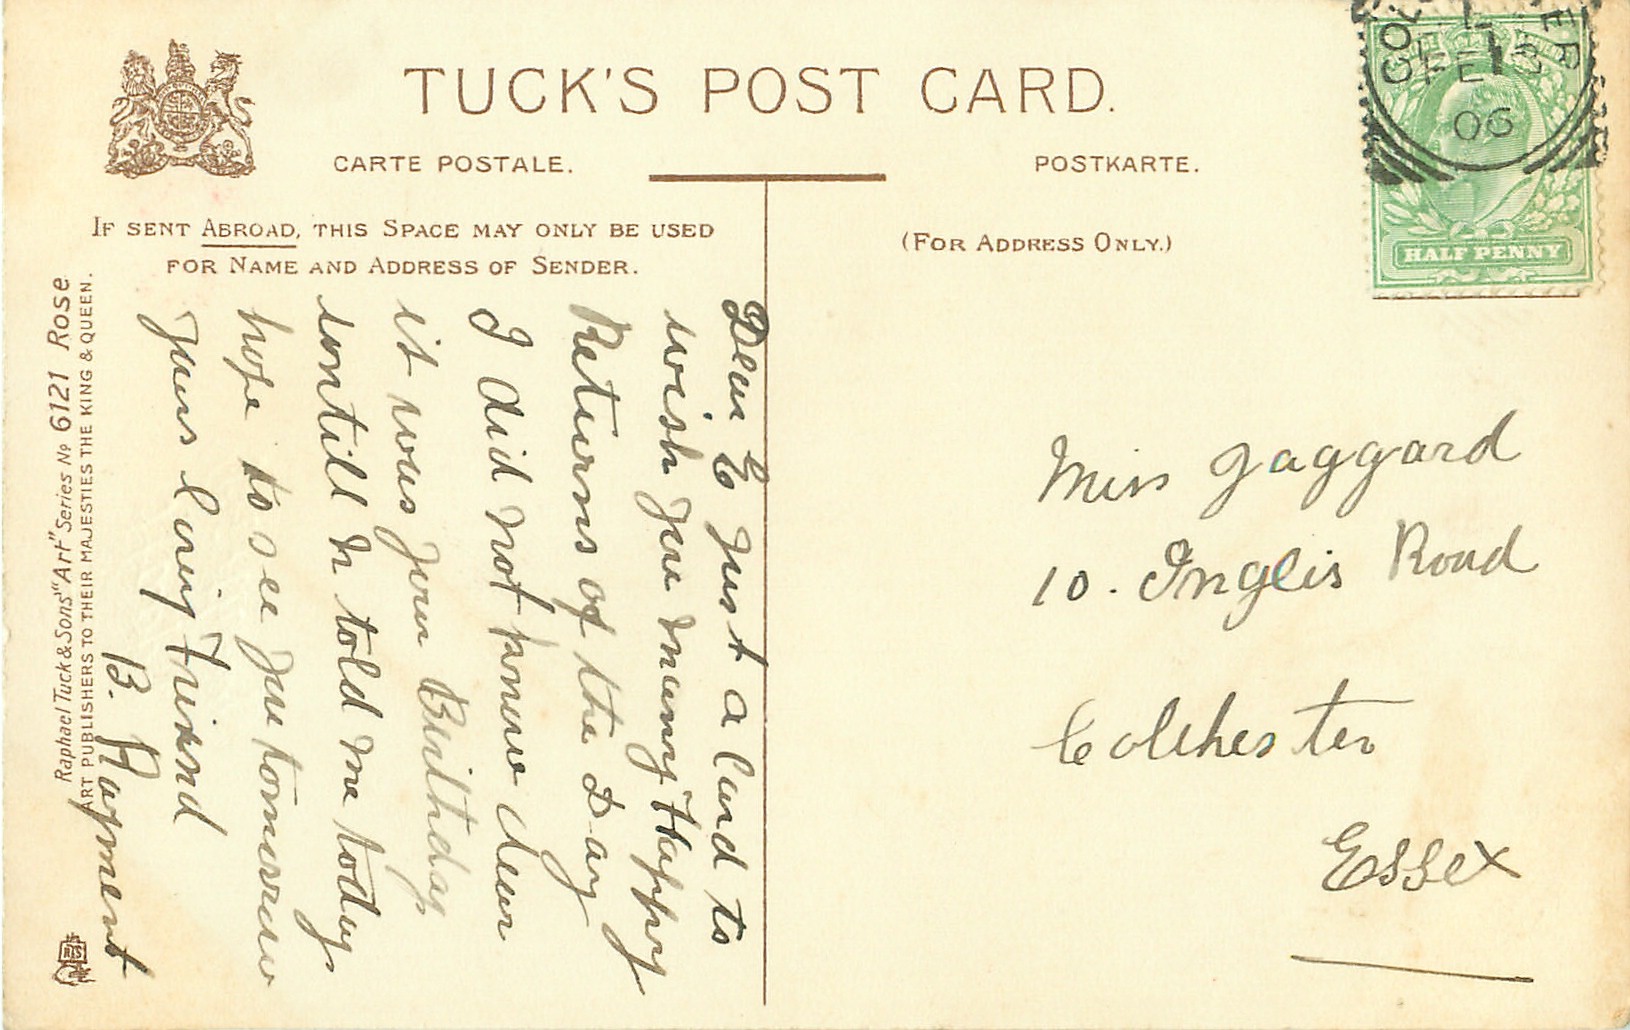 TUCK'S POST CARD.
CARTE POSTALE.
POSTKARTE.
IF SENT ABROAD, THIS SPACE MAY ONLY BE USED
FOR NAME AND ADDRESS OF SENDER.
(FOR ADDRESS ONLY.)
HALF PENNY
06
Dear E Just a Card to
wish you many Happy
Returns of the Day
I did not know dear
it was your Birthday
untill h told me today
hope to see you tomorrow
yours loving Friend
B. Rayment
Raphael Tuck & Sons' "Art" Series No 6121 Rose
ART PUBLISHERS TO THEIR MAJESTIES THE KING & QUEEN.
Miss Jaggard
10. Inglis Road
Colchester
Essex